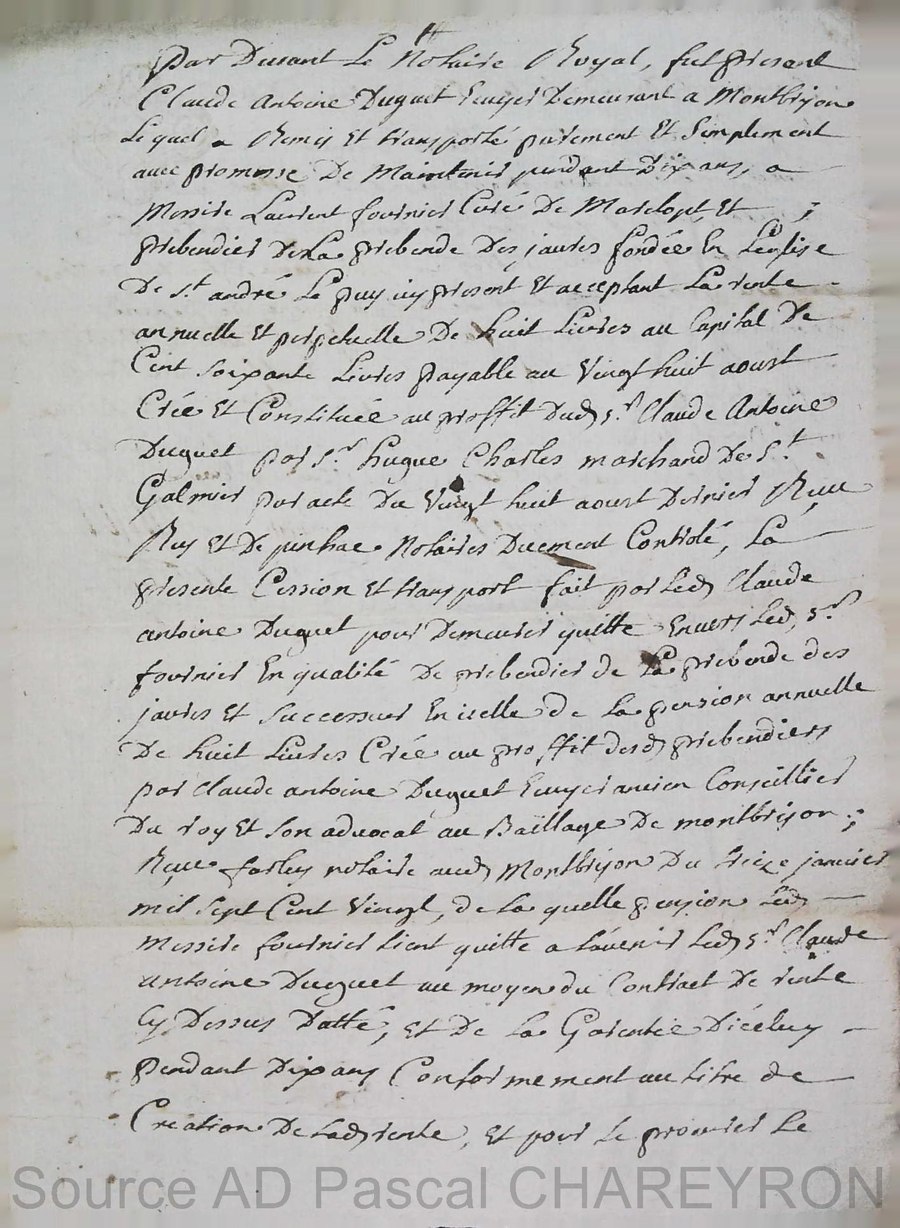 Par Devant Le Notaire Royal, fut present
Claude Antoine Duguet Ecuyer Demeurant a Montbrison
Lequel a Remis Et transporté purement Et Simplement
avec promesse De Maintenir pendant Dix ans, a
Messire Laurent fournier Curé De Marclopt, Et
prebendier De La prebende Des jaures fondée En L'eglise
De St andré Le puy icy present Et acceptant La rente
annuelle Et perpetuelle De huit Livres au Capital De
Cent Soixante Livres payable au Vingt huit aoust
Crée Et Constituée au proffit Dud. Sr. Claude Antoine
Duguet par Sr. hugue Charles marchand De St
Galmier par acte Du Vingt huit aoust Dernier Reçu
Rey Et De pinhac Notaires Duement Contrôlé, La
presente Cession Et transport fait par Led. Claude
antoine Duguet pour Demeurer quitte Envers Led. Sr.
fournier En qualité De prebendier de La prebende des
jaures Et Successeur En icelle de La pension annuelle
De huit Livres Crée au proffit desd. prebendiers
par Claude antoine Duguet Ecuyer ancien Conseillier
Du roy Et Son advocat au Baillage De montbrison ;
Reçu notaire aud. Montbrison Du treize janvier
mil Sept Cent Vingt, de La quelle pension Led.
Messire fournier tient quitte a L'avenir Led. Sr. Claude
Antoine Duguet au moyen du Contract De rente
Cy Dessus Datté, Et De La Garentie D'iceluy
pendant Dix ans Conformement au titre de
Création De Lad. rente, Et pour Le premier Le
Source AD Pascal CHAREYRON